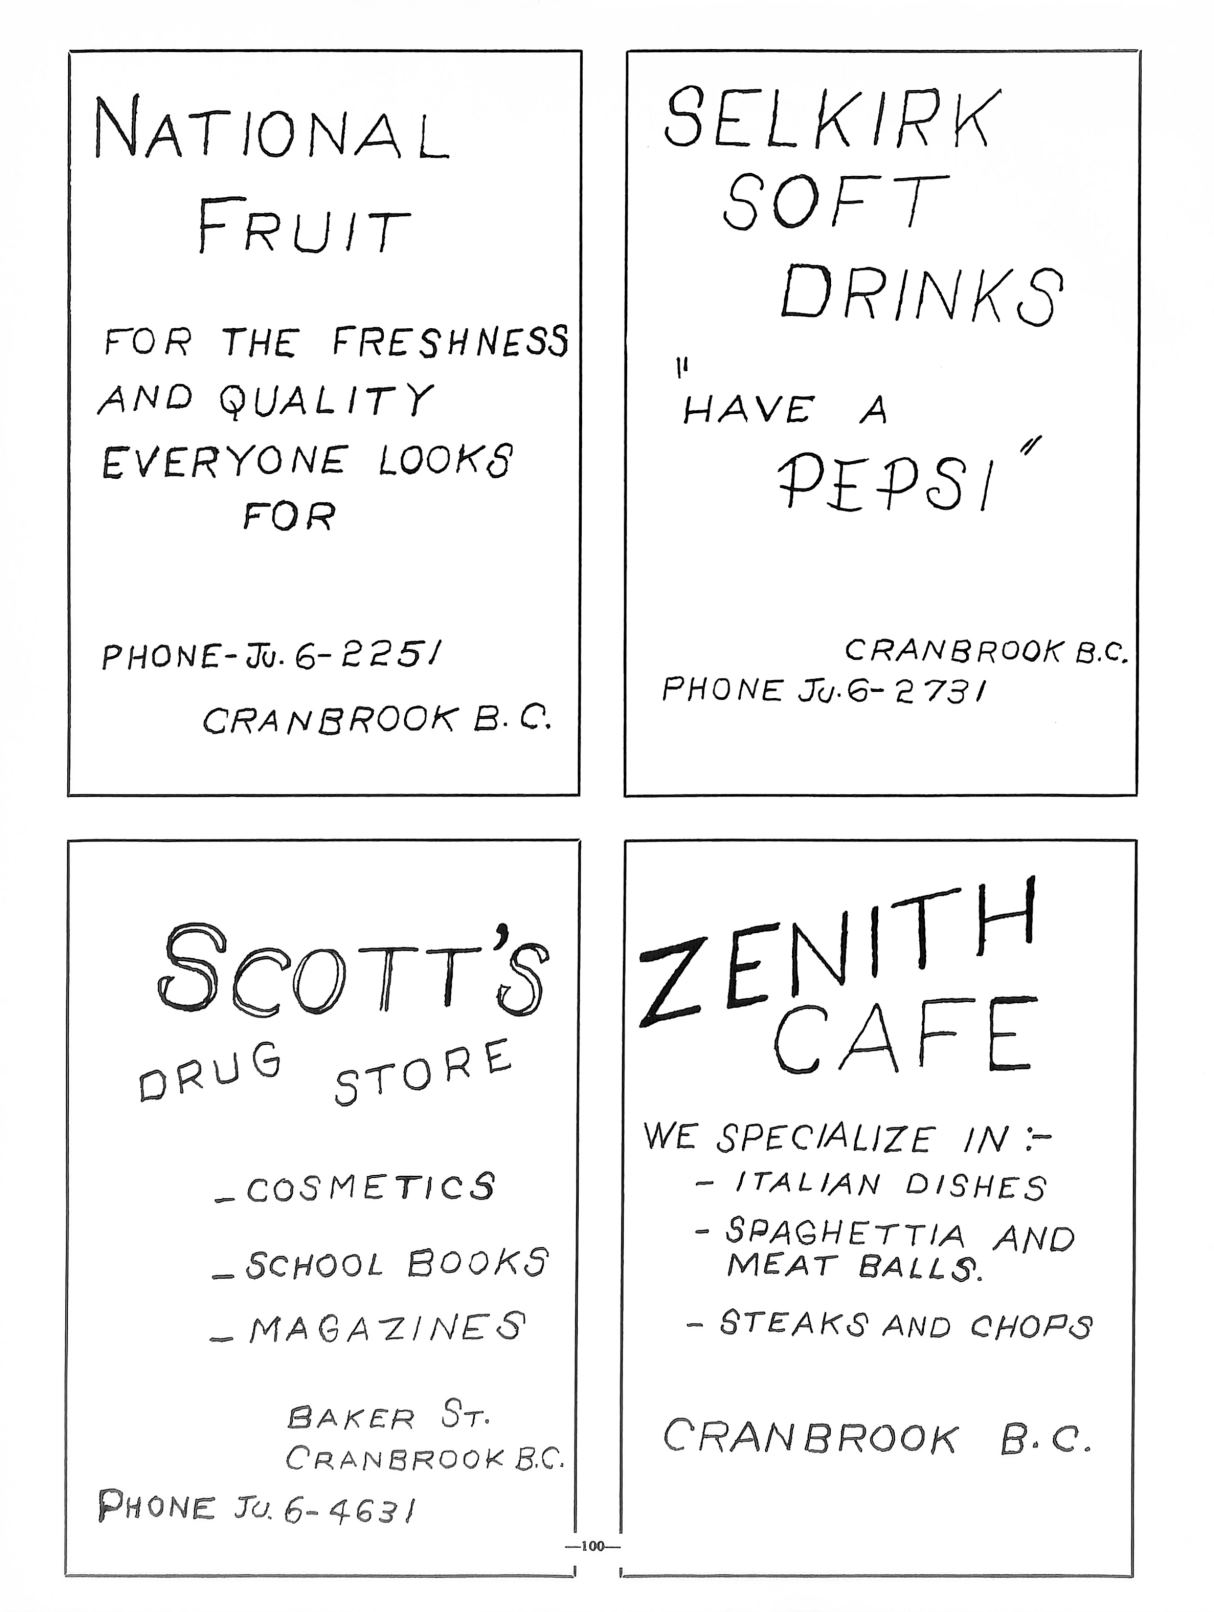 NATIONAL
FRUIT
FOR THE FRESHNESS
AND QUALITY
EVERYONE LOOKS
FOR
PHONE-JU. 6-2251
CRANBROOK B.C.
SELKIRK
SOFT
DRINKS
"HAVE A
PEPSI"
CRANBROOK B.C.
PHONE JU.6-2731
SCOTT'S
DRUG STORE
- COSMETICS
- SCHOOL BOOKS
- MAGAZINES
BAKER ST.
CRANBROOK B.C.
PHONE JU. 6-4631
ZENITH
CAFE
WE SPECIALIZE IN :-
- ITALIAN DISHES
- SPAGHETTIA AND
MEAT BALLS.
- STEAKS AND CHOPS
CRANBROOK B.C.
—100—